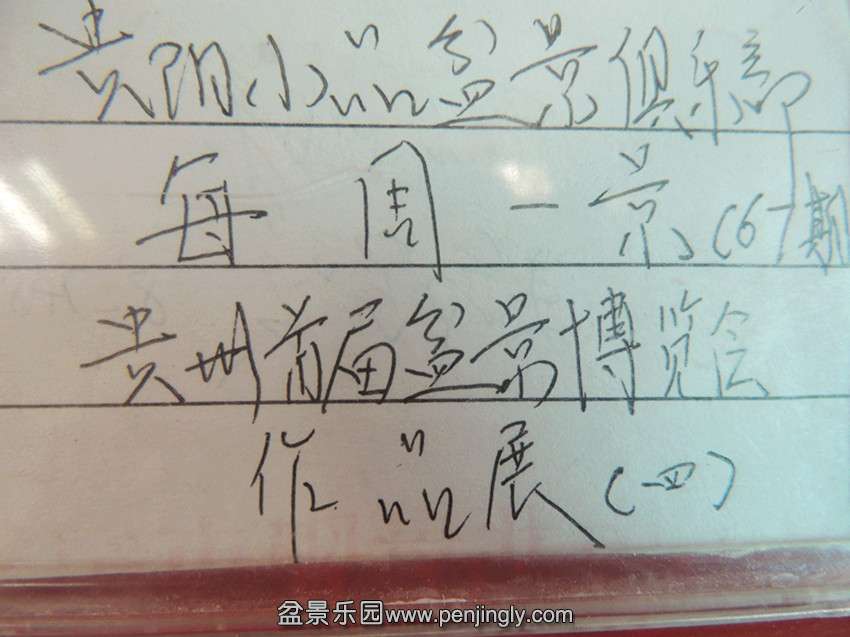 贵阳小品盆景俱乐部
每周一景（67期
贵州首届盆景博览会
作品展（四）
盆景乐园www.penjingly.com